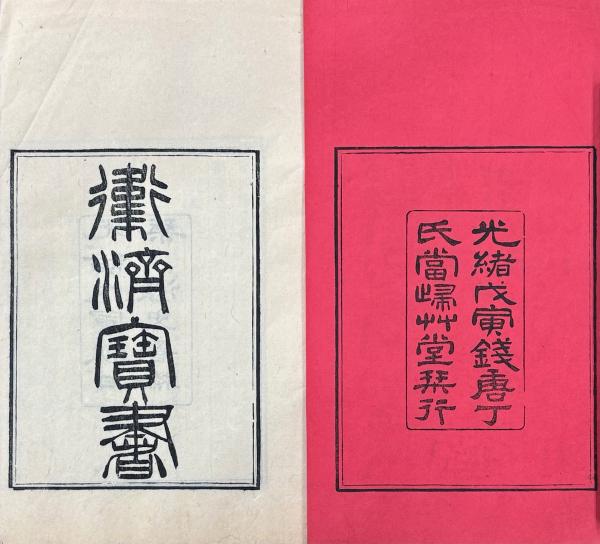 衛濟寶書
光緒戊寅錢唐丁
氏當歸艸堂栞行